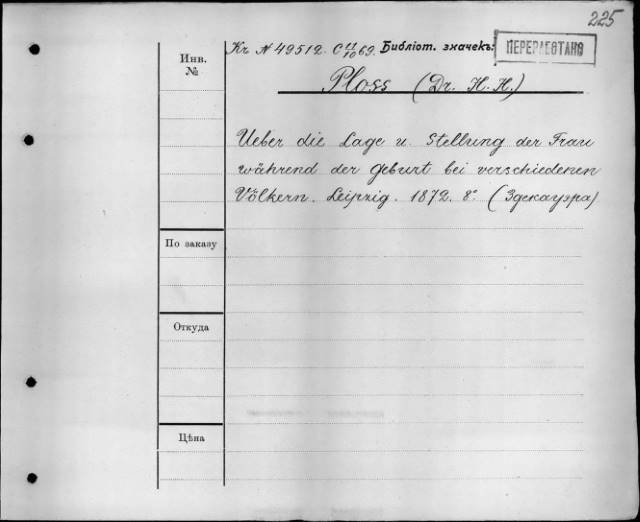 225
Kr N 49512. C 11/10 69. Библіот. значекъ:
ПЕРЕРАБОТАНО
Инв.
№
Ploss (Dr. H. H.)
Ueber die Lage u. Stellung der Frau
während der Geburt bei verschiedenen
Völkern. Leipzig. 1872. 8°. (Здекауэра)
По заказу
Откуда
Цѣна